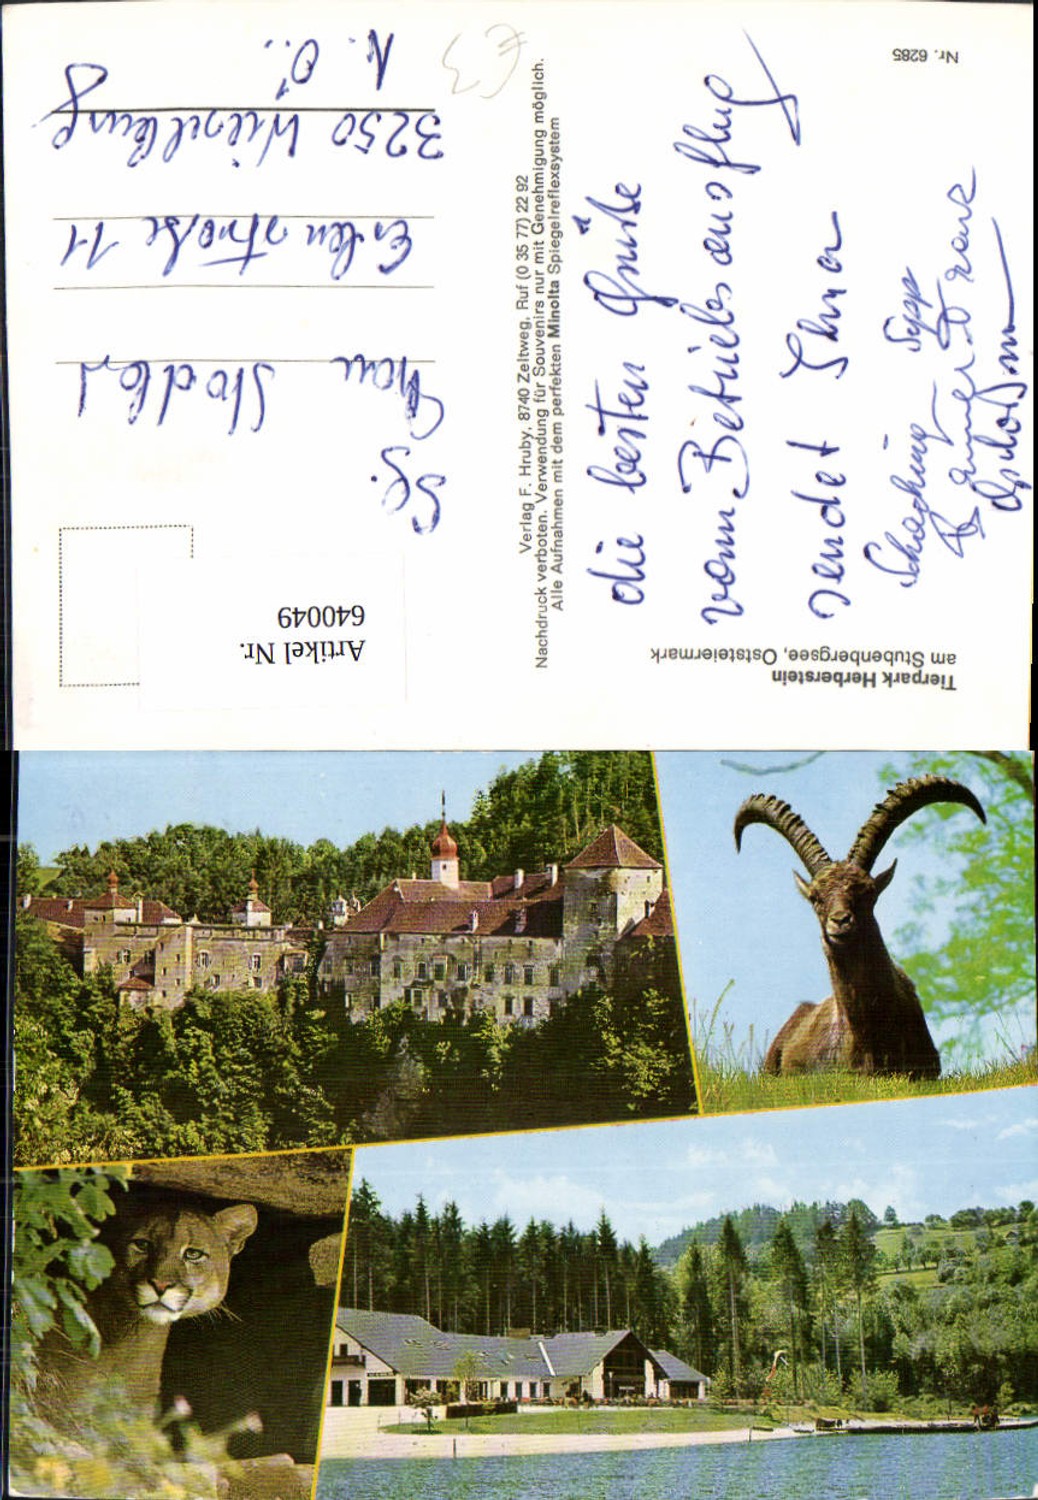 Tierpark Herberstein
am Stubenbergsee, Oststeiermark
die besten Grüße
vom Betriebsausflug
sendet Ihnen
Schachinger Sepp
Nr. 6285
Verlag F. Hruby, 8740 Zeltweg, Ruf (0 35 77) 22 92
Nachdruck verboten. Verwendung für Souvenirs nur mit Genehmigung möglich.
Alle Aufnahmen mit dem perfekten Minolta Spiegelreflexsystem
Artikel Nr.
640049
Frau
Erlenstraße 11
3250 Wieselburg
N. Ö.
€3